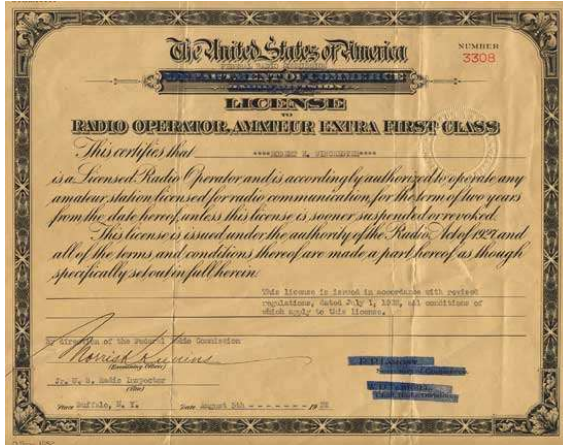 The United States of America
NUMBER
3308
DEPARTMENT OF COMMERCE
LICENSE
TO
RADIO OPERATOR, AMATEUR EXTRA FIRST CLASS
This certifies that ****ROBERT M. ****
is a Licensed Radio Operator and is accordingly authorized to operate any
amateur station licensed for radio communication, for the term of two years
from the date hereof, unless this license is sooner suspended or revoked.
This license is issued under the authority of the Radio Act of 1927 and
all of the terms and conditions thereof are made a part hereof as though
specifically set out in full herein:
This license is issued in accordance with revised
regulations, dated July 1, 1932, all conditions of
which apply to this license.
By direction of the Federal Radio Commission
(Examining Officer)
Jr. U. S. Radio Inspector
(Title)
Place Buffalo, N. Y. Date August 5th - - - - - - - 1932
R. P. LAMONT
Secretary of Commerce